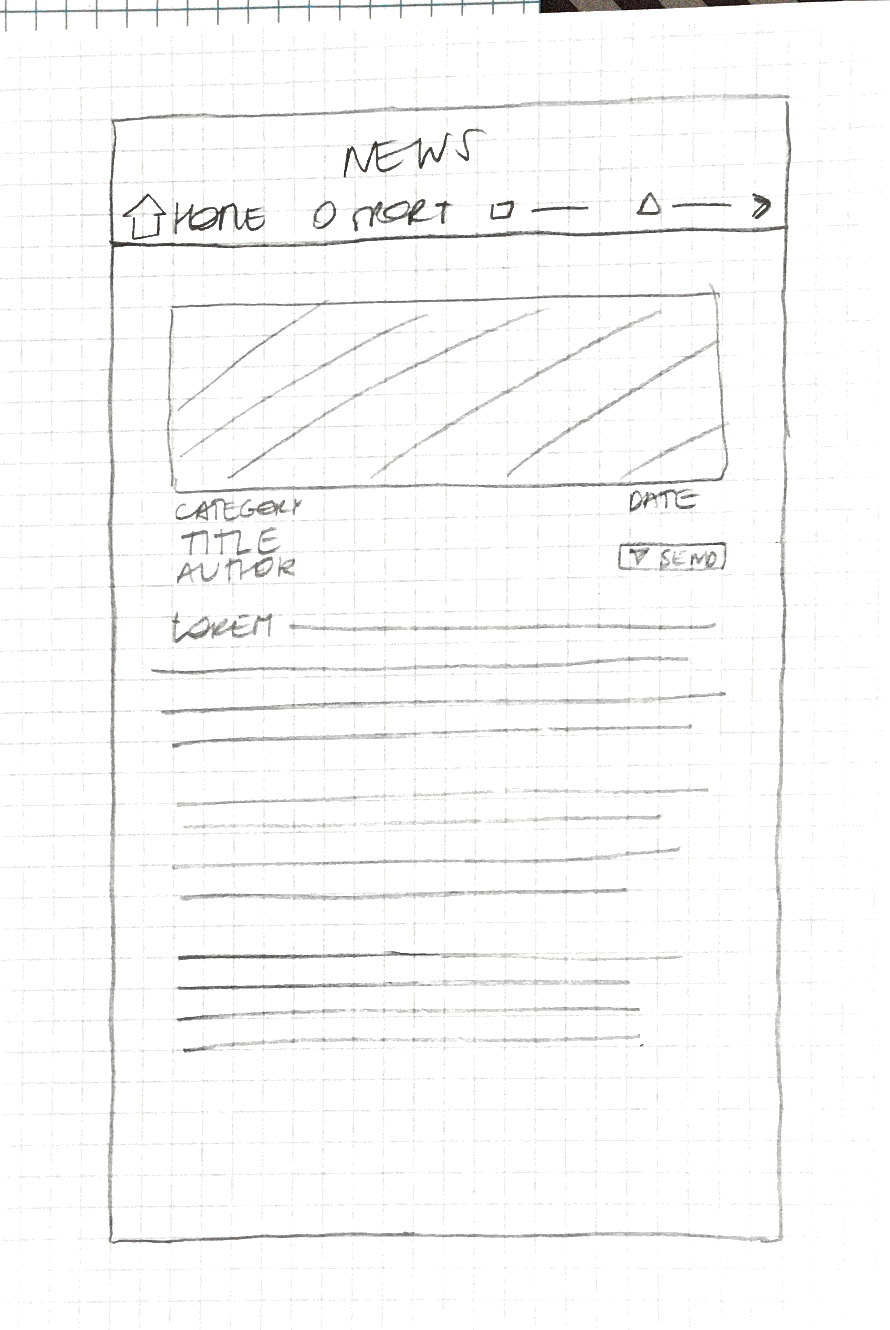 NEWS
HOME SPORT
CATEGORY DATE
TITLE
AUTHOR SEND
LOREM